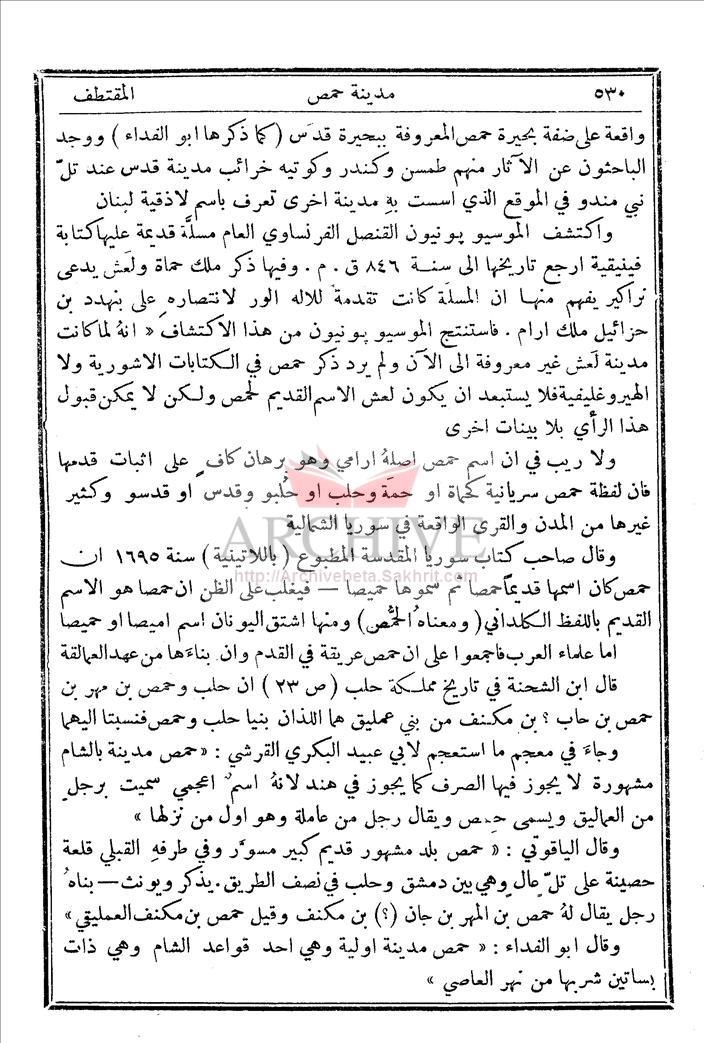 ٥٣٠ مدينة حمص المقتطف
واقعة على ضفة بحيرة حمص المعروفة ببحيرة قدَس (كما ذكرها ابو الفداء) ووجد
الباحثون عن الآثار منهم طمسن وكندر وكوتيه خرائب مدينة قدس عند تلّ
نبي مندو في الموقع الذي اسست بهِ مدينة اخرى تعرف باسم لاذقية لبنان
واكتشف الموسيو پونيون القنصل الفرنساوي العام مسلَّة قديمة عليها كتابة
فينيقية ارجع تاريخها الى سنة ٨٤٦ ق . م . وفيها ذكر ملك حماة ولَعَش يدعى
زاكير يفهم منها ان المسلَّة كانت تقدمة للاله الور لانتصاره على بنهدد بن
حزائيل ملك ارام . فاستنتج الموسيو پونيون من هذا الاكتشاف « انهُ لما كانت
مدينة لَعش غير معروفة الى الآن ولم يرد ذكر حمص في الكتابات الاشورية ولا
الهيروغليفية فلا يستبعد ان يكون لعش الاسم القديم لحمص ولكن لا يمكن قبول
هذا الرأي بلا بينات اخرى
ولا ريب في ان اسم حمص اصلهُ ارامي وهو برهان كافٍ على اثبات قدمها
فان لفظة حمص سريانية كحماة او حمة وحلب او حُلبو وقدس او قدسو وكثير
غيرها من المدن والقرى الواقعة في سوريا الشمالية
ARCHIVE
وقال صاحب كتاب سوريا المقدسة المطبوع (باللاتينية) سنة ١٦٩٥ ان
http://Archivebeta.Sakhrit.com
حمص كان اسمها قديماً حمصا ثم سموها حميصا — فيغلب على الظن ان حمصا هو الاسم
القديم باللفظ الكلداني (ومعناه الحُمُّص) ومنها اشتق اليونان اسم اميصا او حميصا
اما علماء العرب فاجمعوا على ان حمص عريقة في القدم وان بناءَها من عهد العمالقة
قال ابن الشحنة في تاريخ مملكة حلب (ص ٢٣) ان حلب وحمص بن مهر بن
حمص بن حاب ? بن مكنف من بني عمليق هما اللذان بنيا حلب وحمص فنسبتا اليهما
وجاءَ في معجم ما استعجم لابي عبيد البكري القرشي : « حمص مدينة بالشام
مشهورة لا يجوز فيها الصرف كما يجوز في هند لانهُ اسمٌ اعجمي سميت برجلٍ
من العماليق ويسمى حمص ويقال رجل من عاملة وهو اول من نزلها »
وقال الياقوتي : « حمص بلد مشهور قديم كبير مسوَّر وفي طرفهِ القبلي قلعة
حصينة على تلّ عالٍ وهي بين دمشق وحلب في نصف الطريق . يذكر ويونث — بناهُ
رجل يقال لهُ حمص بن المهر بن جان (؟) بن مكنف وقيل حمص بن مكنف العمليقي »
وقال ابو الفداء : « حمص مدينة اولية وهي احد قواعد الشام وهي ذات
بساتين شربها من نهر العاصي »